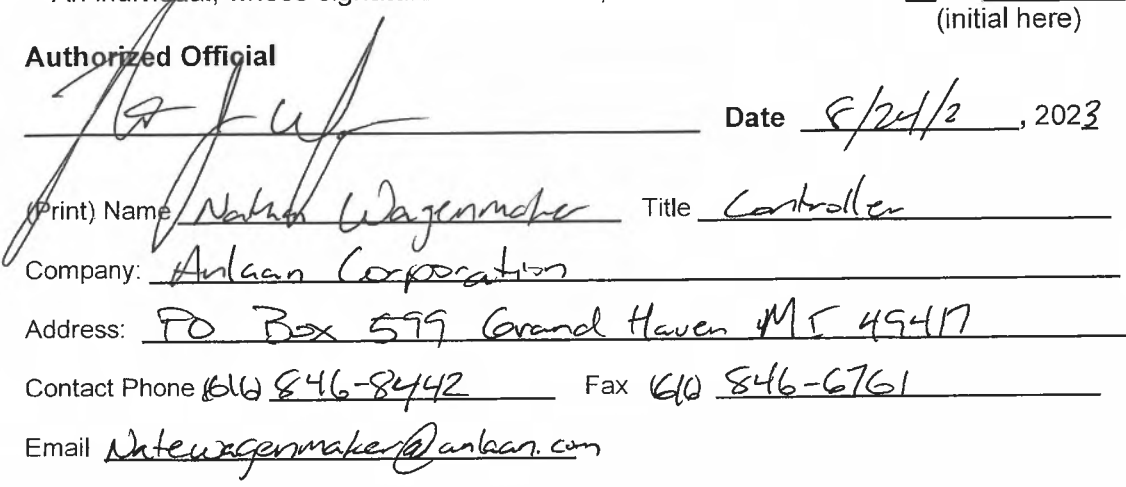 An individual, whose signat
(initial here)
Authorized Official
Date 8/24/2, 2023
(Print) Name Nathan Wagenmaker Title Controller
Company: Anlaan Corporation
Address: PO Box 599 Grand Haven MI 49417
Contact Phone (616) 846-8442 Fax (616) 846-6761
Email Natewagenmaker@anlaan.com